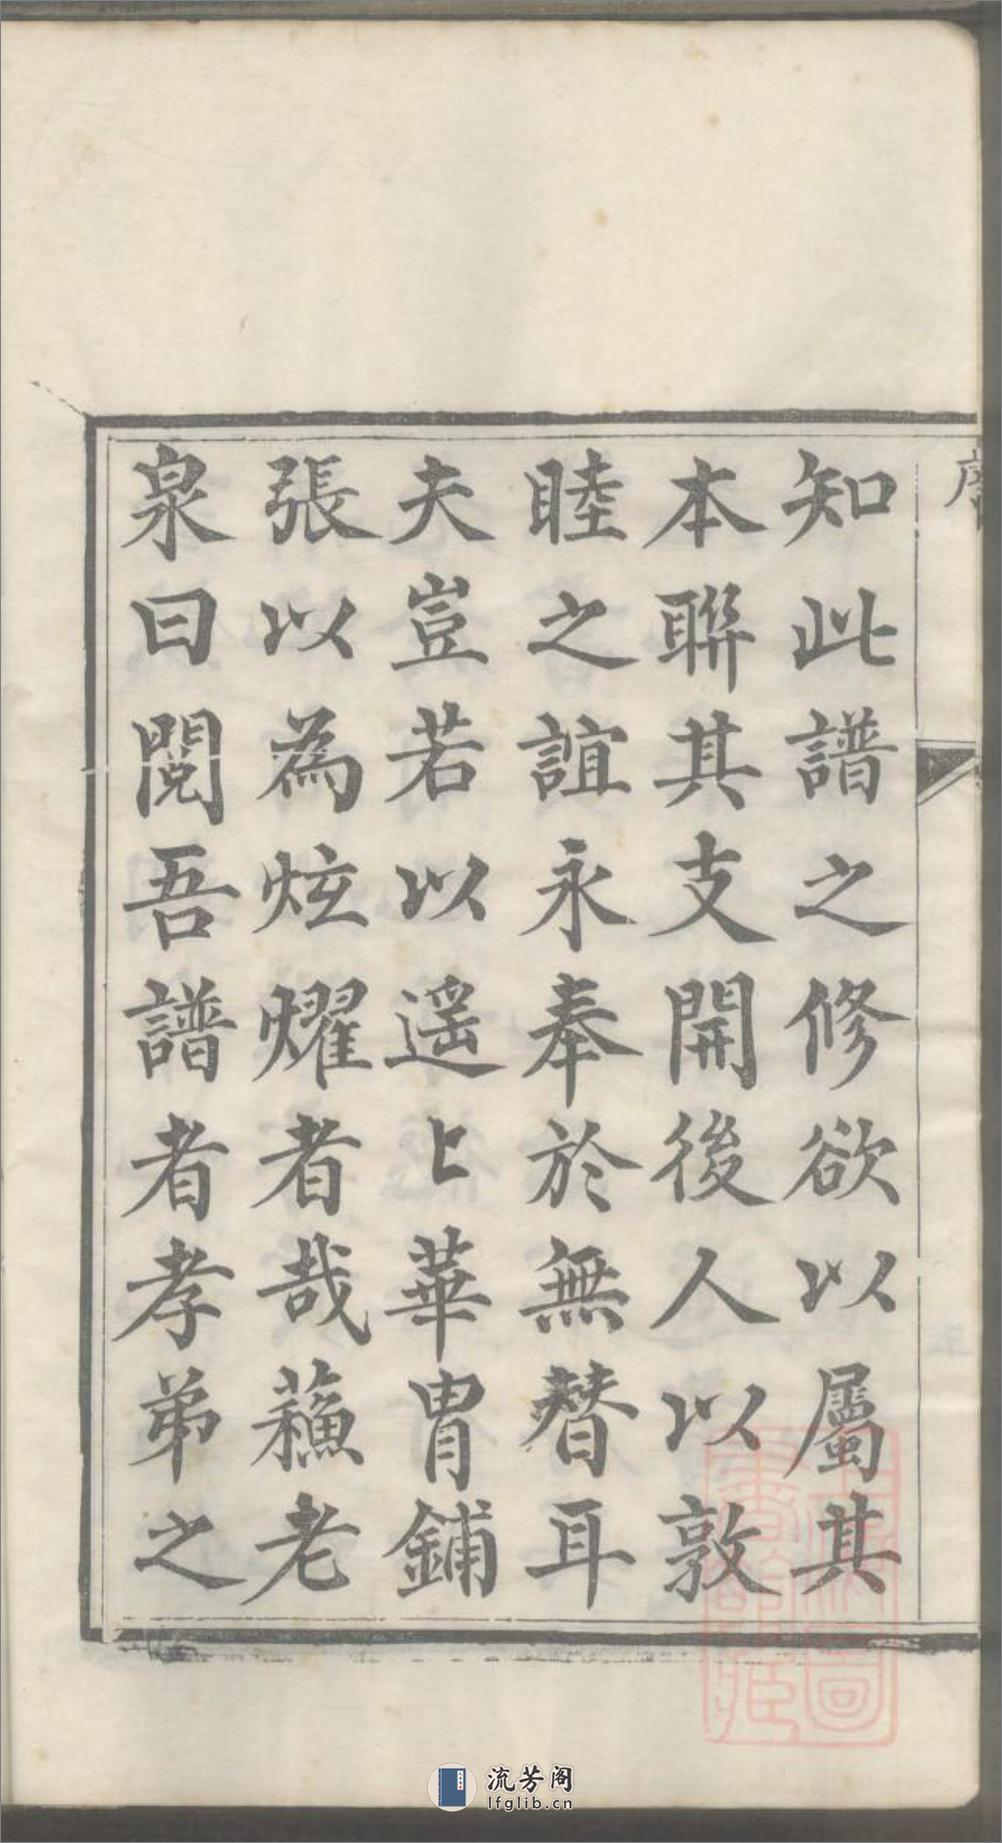 知此譜之修欲以屬其
本聯其支開後人以敦
睦之誼永奉於無替耳
夫豈若以遥上華胄鋪
張以為炫燿者哉蘓老
泉曰閱吾譜者孝弟之
流芳阁
lfglib.cn